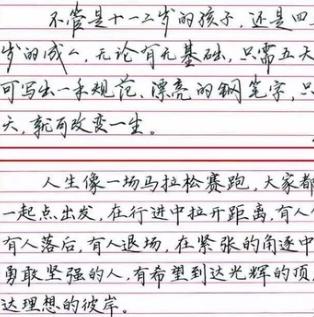 不管是十一二岁的孩子,还是四
岁的成人,无论有无基础,只需五天
可写出一手规范、漂亮的钢笔字,只
天,就可改变一生。
人生像一场马拉松赛跑,大家都
一起点出发,在行进中拉开距离,有人
有人落后,有人退场,在紧张的角逐中
勇敢坚强的人,有希望到达光辉的顶
达理想的彼岸。